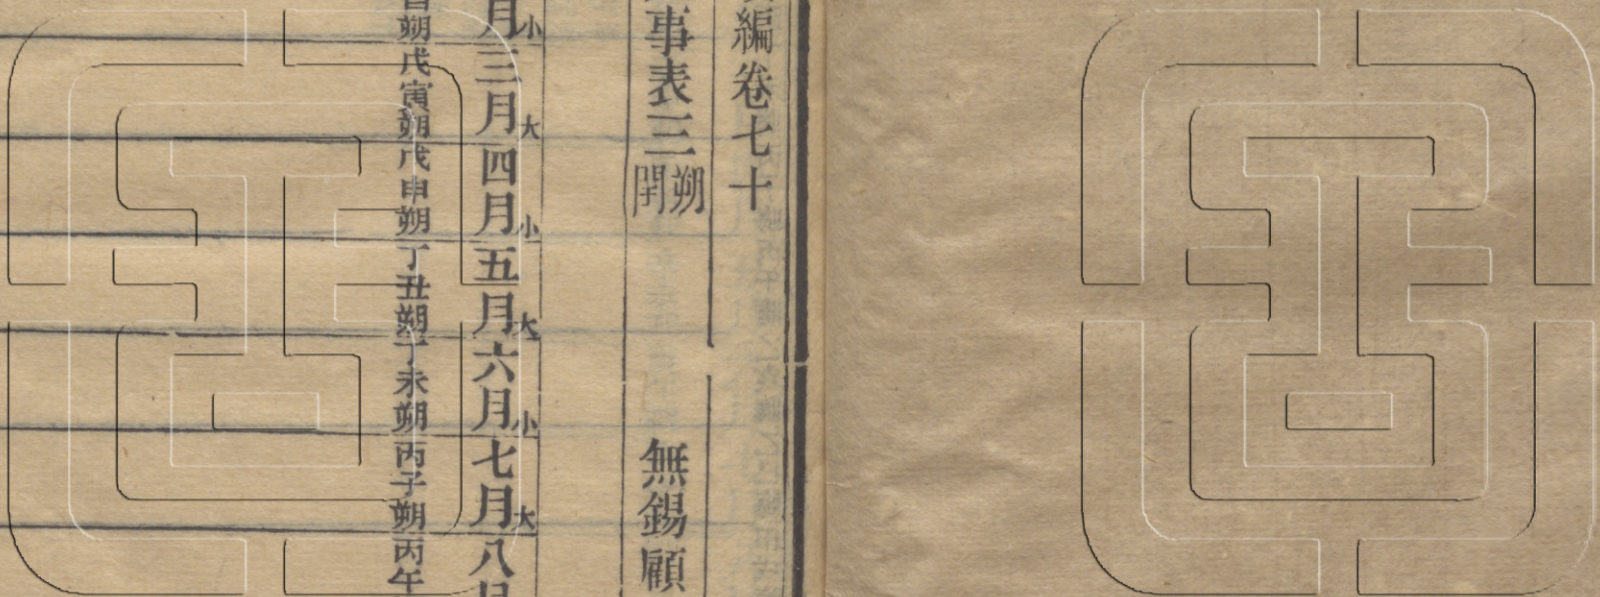 編卷七十
事表三朔閏
無錫顧
月小三月大四月小五月大六月小七月大八月
朔戊寅朔戊申朔丁丑朔丁未朔丙子朔丙午